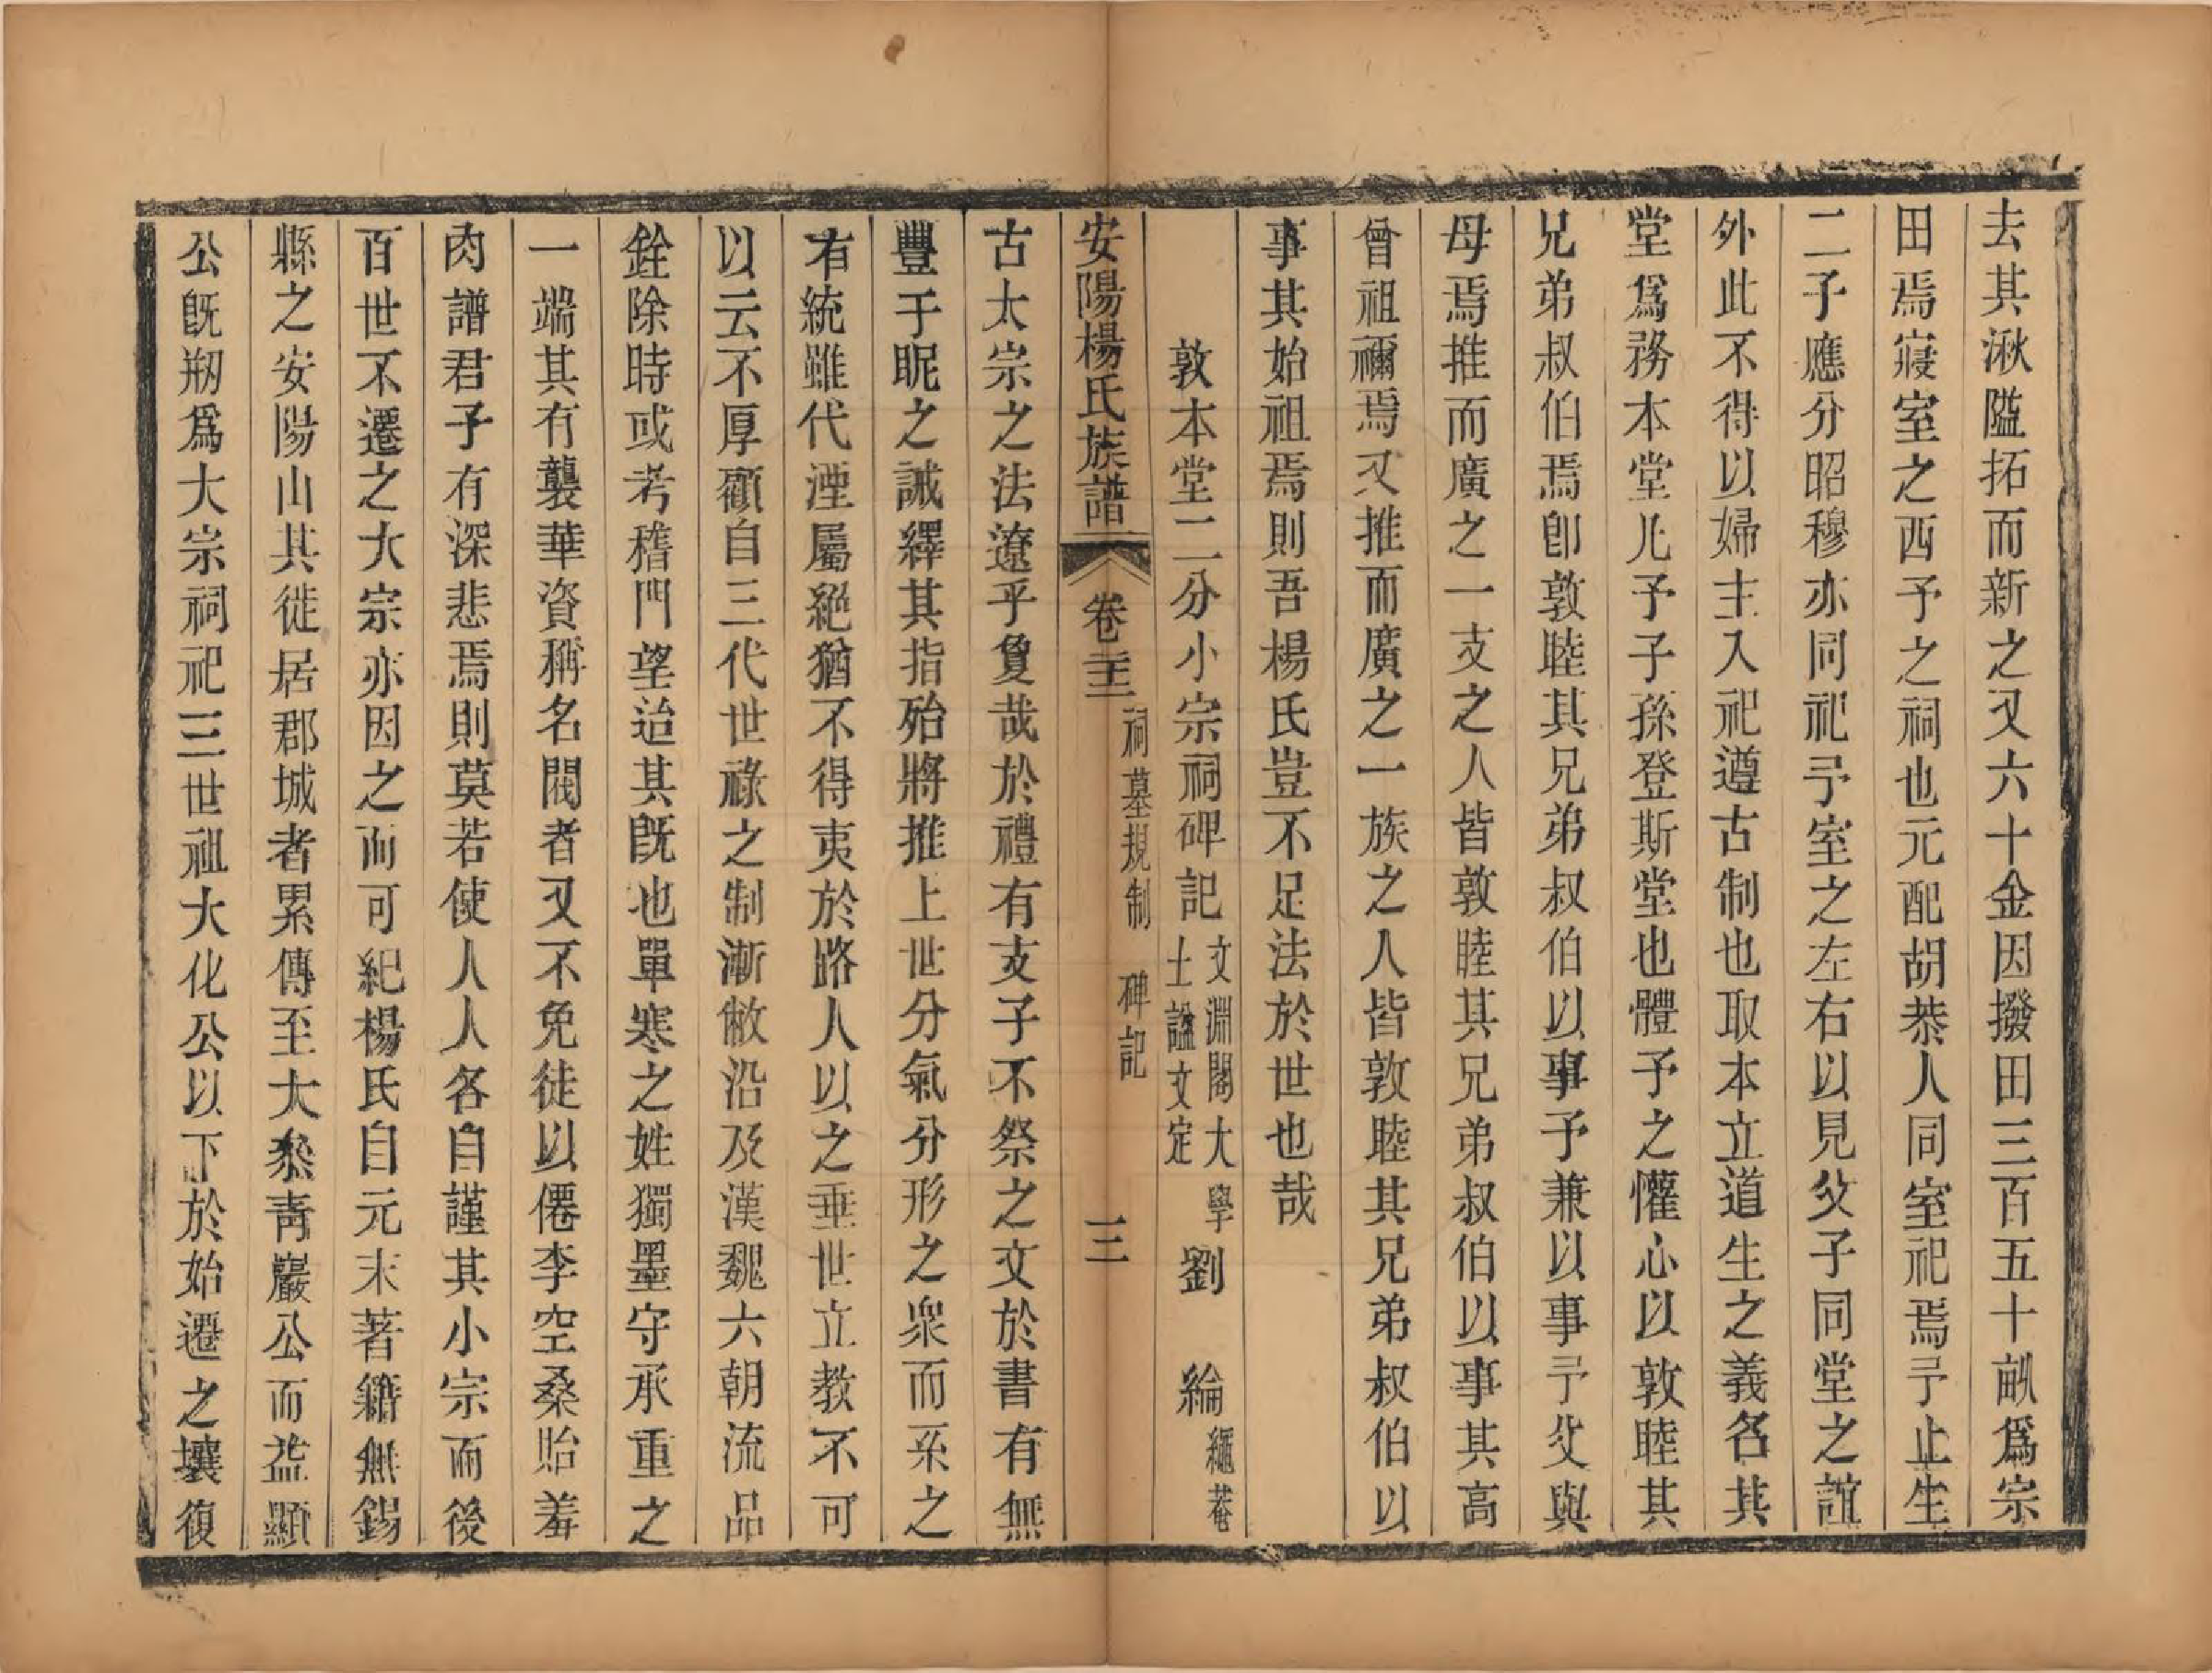 去其湫隘拓而新之又六十金因撥田三百五十畝爲宗
田焉寢室之西予之祠也元配胡恭人同室祀焉予止生
二子應分昭穆亦同祀予室之左右以見父子同堂之誼
外此不得以婦主入祀遵古制也取本立道生之義名其
堂爲務本堂凡予子孫登斯堂也體予之懽心以敦睦其
兄弟叔伯焉卽敦睦其兄弟叔伯以事予兼以事予父與
母焉推而廣之一支之人皆敦睦其兄弟叔伯以事其高
曾祖禰焉又推而廣之一族之人皆敦睦其兄弟叔伯以
事其始祖焉則吾楊氏豈不足法於世也哉
敦本堂二分小宗祠碑記 文淵閣大學士謚文定 劉綸 繩菴
安陽楊氏族譜 卷二十三 祠墓規制 碑記 三
古太宗之法遼乎敻哉於禮有支子不祭之文於書有無
豐于昵之誡繹其指殆將推上世分氣分形之衆而系之
有統雖代湮屬絕猶不得夷於路人以之垂世立教不可
以云不厚顧自三代世祿之制漸敝沿及漢魏六朝流品
銓除時或考稽門望迨其旣也單寒之姓獨墨守承重之
一端其有襲華資稱名閥者又不免徒以僊李空桑貽羞
肉譜君子有深悲焉則莫若使人人各自謹其小宗而後
百世不遷之大宗亦因之而可紀楊氏自元末著籍無錫
縣之安陽山其徙居郡城者累傳至大叅靑巖公而益顯
公旣剏爲大宗祠祀三世祖大化公以下於始遷之壤復